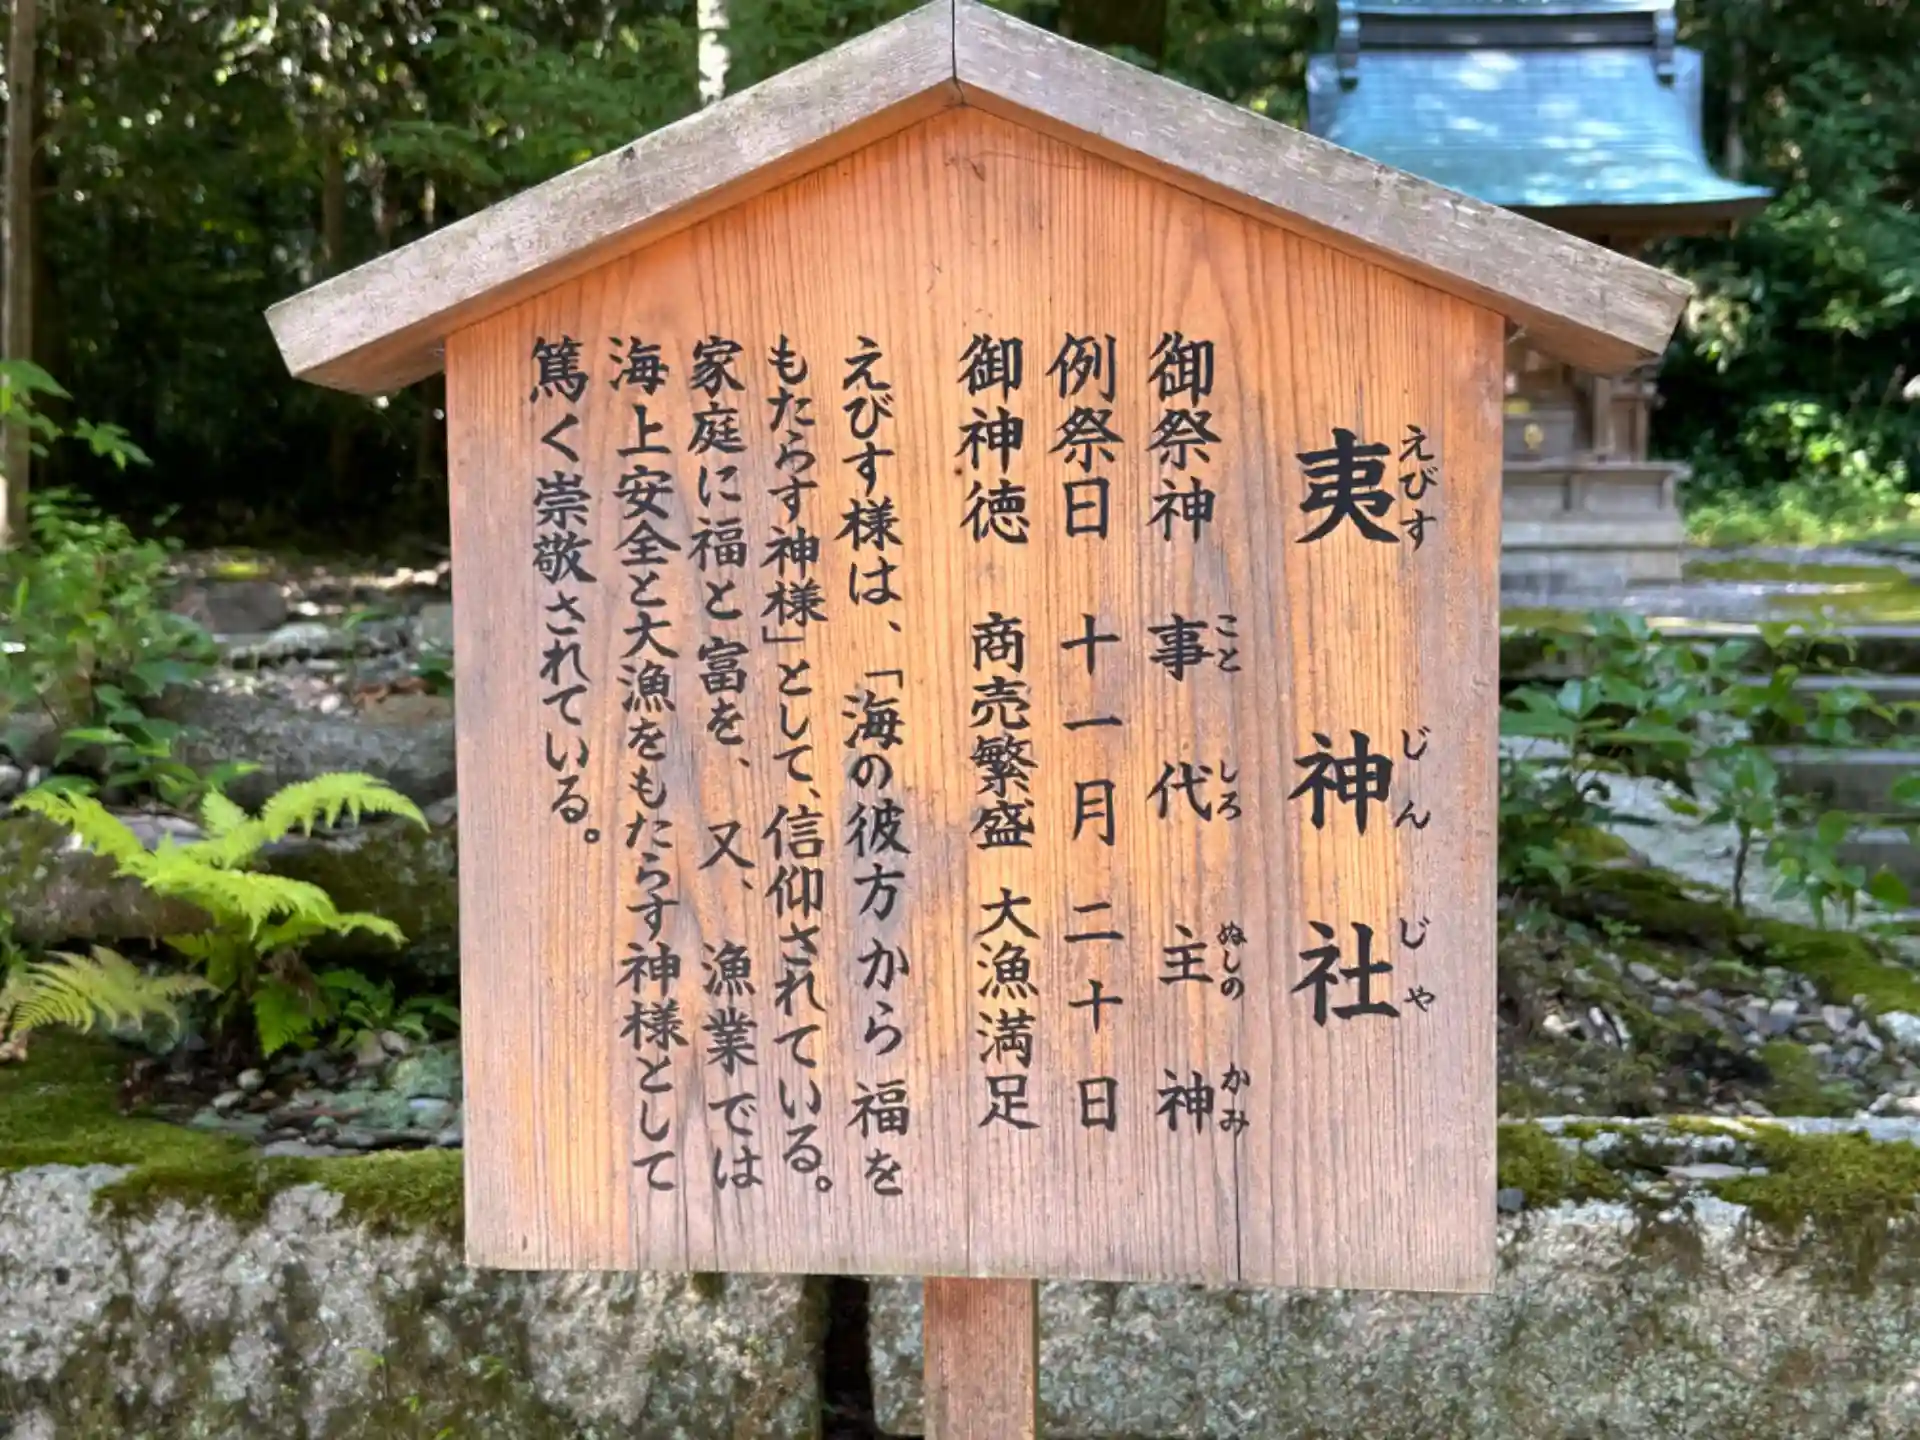 夷神社
えびす じん じゃ
御祭神 事代主神
こと しろ ぬしの かみ
例祭日 十一月二十日
御神徳 商売繁盛 大漁満足
えびす様は、「海の彼方から福を
もたらす神様」として、信仰されている。
家庭に福と富を、又、漁業では
海上安全と大漁をもたらす神様として
篤く崇敬されている。